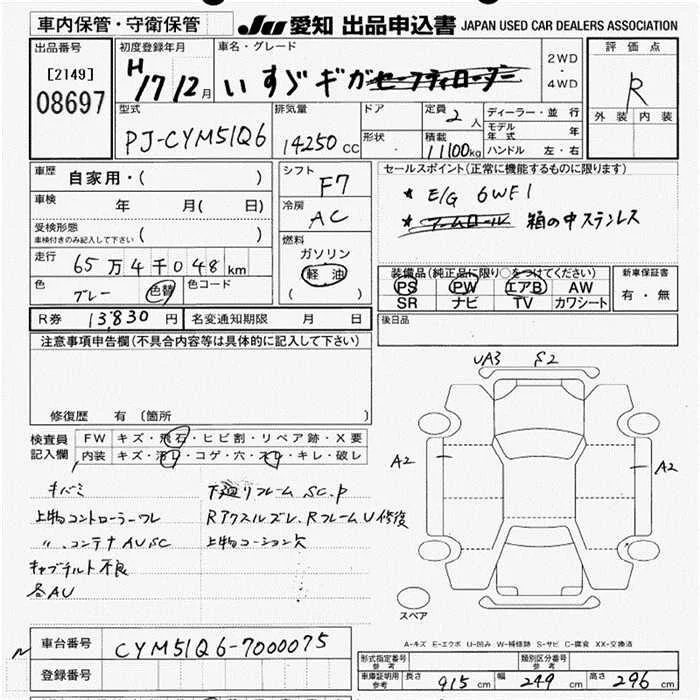 車内保管・守衛保管 JU 愛知 出品申込書 JAPAN USED CAR DEALERS ASSOCIATION
出品番号 初度登録年月 車名・グレード 2WD・4WD 評価点
[2149] 08697 H17 12月 いすゞギガ R
外装 内装
型式 排気量 ドア 定員 2人 ディーラー・並行
PJ-CYM51Q6 14250cc 形状 積載 11100kg モデル年式 年
ハンドル 左・右
車歴 自家用・( ) シフト F7 セールスポイント(正常に機能するものに限ります)
車検 年 月( 日) 冷房 AC * E/G 6WF1
受検形態 車検付きのみ記入して下さい ( ) * 箱の中ステンレス
走行 65万4千048km 燃料 ガソリン 軽油 ( )
色 グレー 色替 色コード
装備品(純正品に限り○をつけてください) 新車保証書
PS PW エアB AW 有・無
SR ナビ TV カワシート
R券 13,830円 名変通知期限 月 日 後日品
注意事項申告欄(不具合内容等は具体的に記入して下さい)
修復歴 有 〔箇所
UA3 S2
A2 A2
検査員記入欄 FW キズ・飛石・ヒビ割・リペア跡・X要
内装 キズ・汚レ・コゲ・穴・スレ・キレ・破レ
キバミ 下廻リフレームSC.P
上物コントローラーワレ Rアクスルズレ、RフレームU修復
〃 、コンテナAUSC 上物コーション欠
キャブチルト不良
各AU
スペア
A-キズ E-エクボ U-凹み W-補修跡 S-サビ C-腐食 XX-交換済
車台番号 CYM51Q6-7000075
登録番号
形式指定番号 参考 類別区分番号 参考
車庫証明用 参考 長さ 915cm 幅 249cm 高さ 296cm